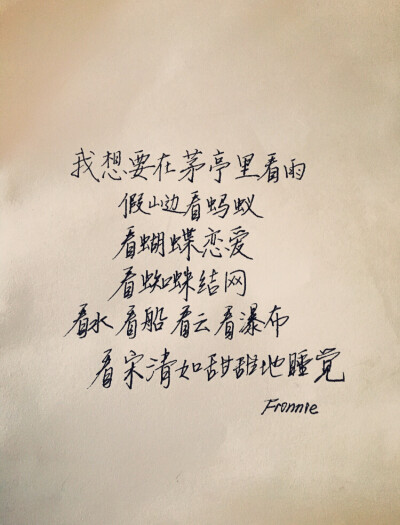 我想要在茅亭里看雨
假山边看蚂蚁
看蝴蝶恋爱
看蜘蛛结网
看水看船看云看瀑布
看宋清如甜甜地睡觉
Fronnie